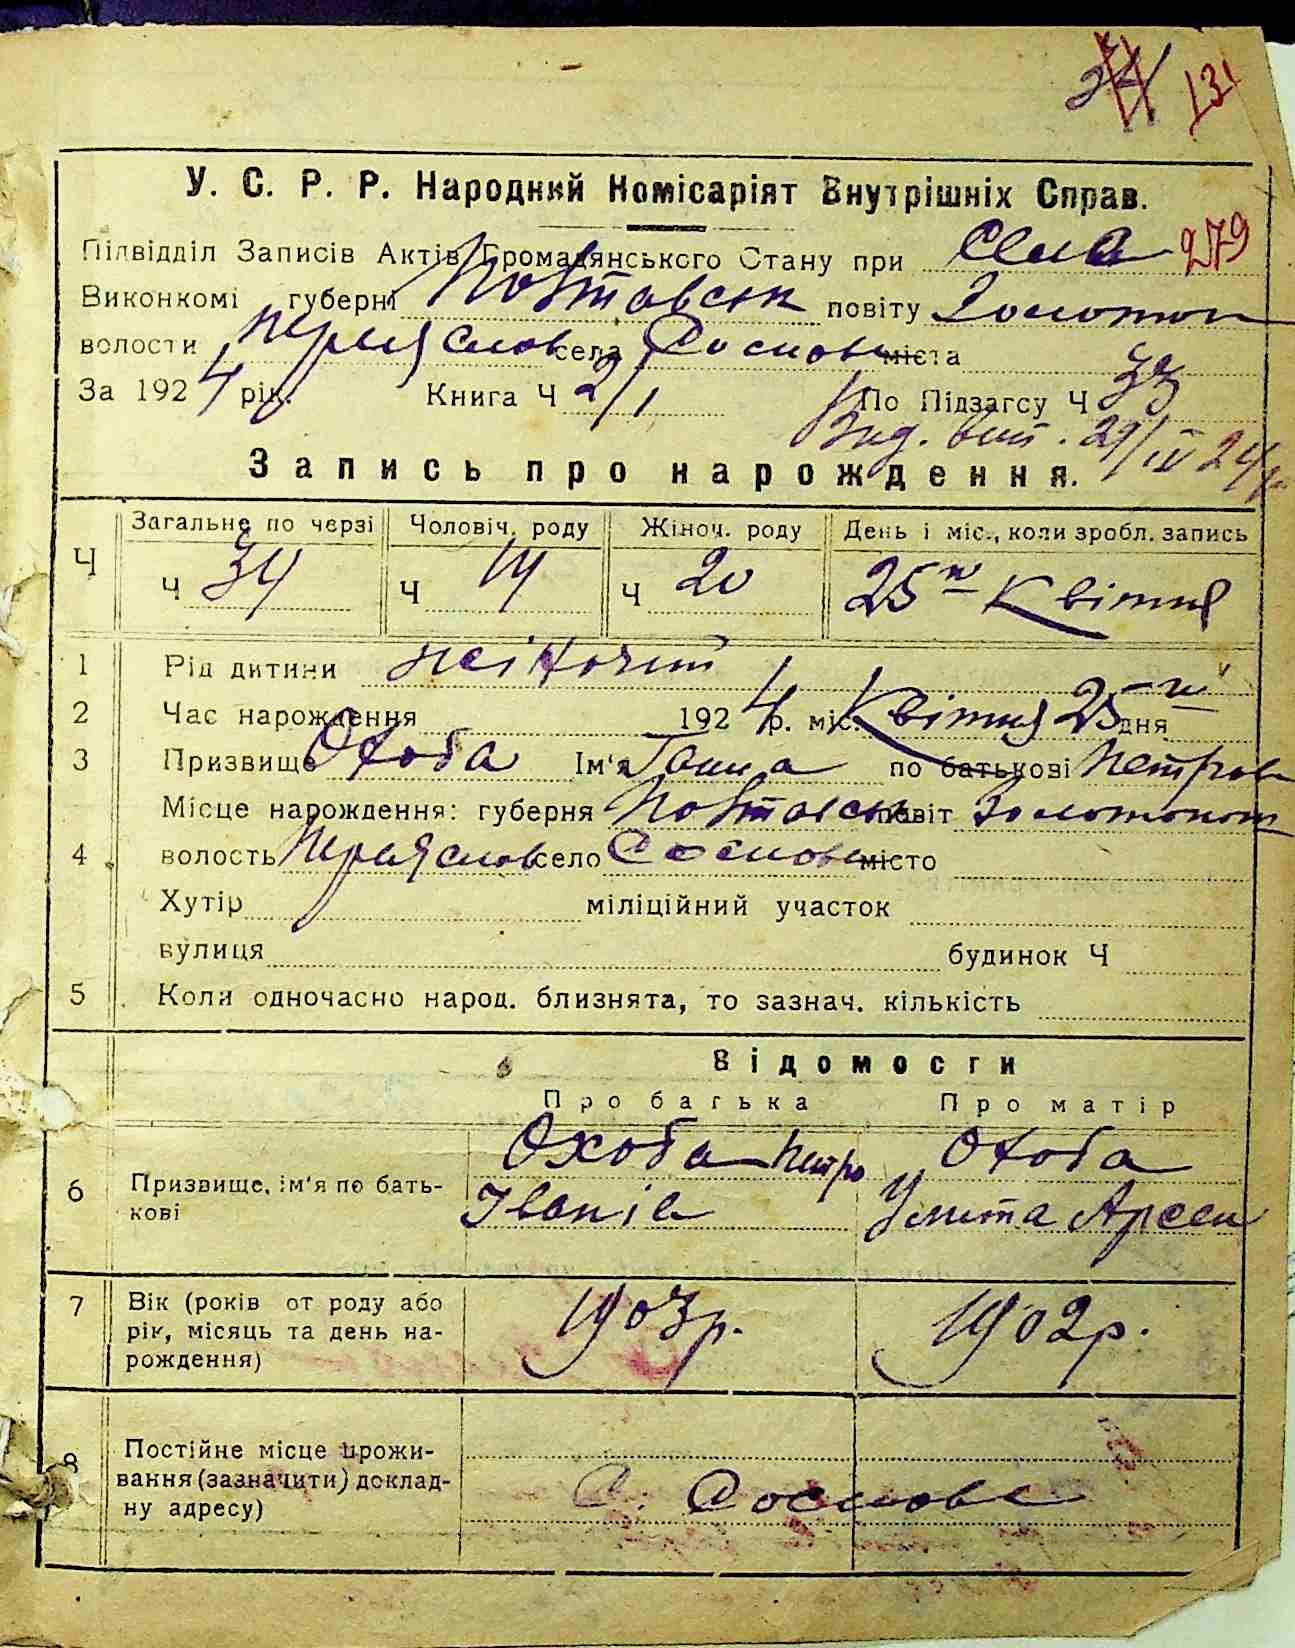 34 131
У. С. Р. Р. Народний Комісаріят Внутрішніх Справ.
Підвідділ Записів Актів Громадянського Стану при села 279
Виконкомі губерні Повтавськ повіту Золотон
волости Переяслов села Соснове міста
За 1924 рік. Книга Ч 2/1 По Підзагсу Ч 33
Вид. вит. 29/IV 24
Запись про народження.
Загальне по черзі Чоловіч. роду Жіноч. роду День і міс., коли зробл. запись
Ч Ч 34 Ч 14 Ч 20 25го Квітня
1 Рід дитини жіночий
2 Час народження 1924 р. міс. Квітня 25го дня
3 Призвище Охоба Ім'я Ганна по батькові Петрова
Місце нарождення: губерня Повтавськ повіт Золотонош
4 волость Переяслов село Соснове місто
Хутір міліційний участок
вулиця будинок Ч
5 Коли одночасно народ. близнята, то зазнач. кількість
Відомости
Про батька Про матір
Охоба Петро Охоба
6 Призвище, ім'я по бать-
кові Іванів Улита Арсен
7 Вік (років от роду або
рік, місяць та день на-
рождення) 1903р. 1902р.
8 Постійне місце прожи-
вання (зазначити) доклад-
ну адресу) С. Соснове